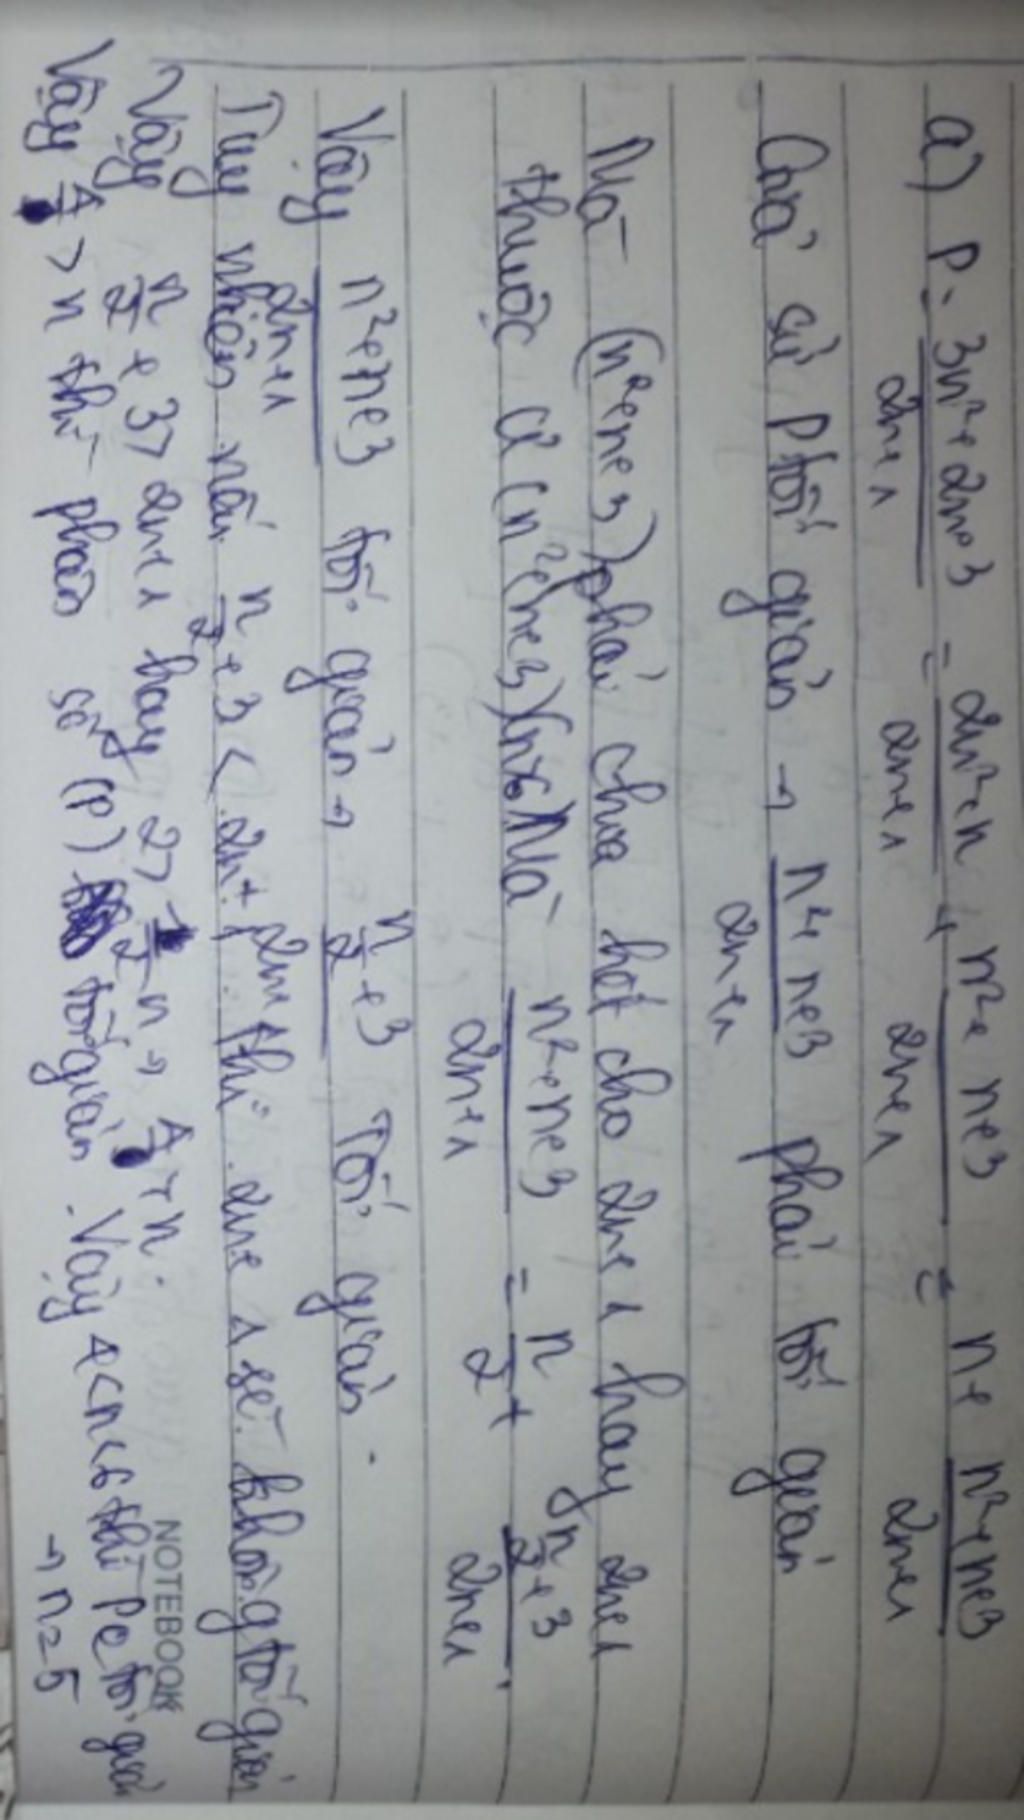 a) P = 3n²+2n+3 / 2n+1 = 2n²+n / 2n+1 + n²+n+3 / 2n+1 = n+ n²+n+3 / 2n+1
Giả sử P tối giản → n²+n+3 / 2n+1 phải tối giản
Mà (n²+n+3) phải chia hết cho 2n+1 hay 2n+1
thuộc Ư (n²+n+3) Mà n²+n+3 / 2n+1 = n/2 + n/2+3 / 2n+1 .
Vậy n²+n+3 / 2n+1 tối giản → n/2+3 / 2n+1 Tối giản .
Tuy nhiên nếu n/2+3 < 2n+1 thì 2n+1 sẽ không tối giản
Vậy n/2+3> 2n+1 hay 2>
Vậy > n thì phân số (P) tối giản . Vậy 4<n<6 thì P tối giản
→ n=5
NOTEBOOK